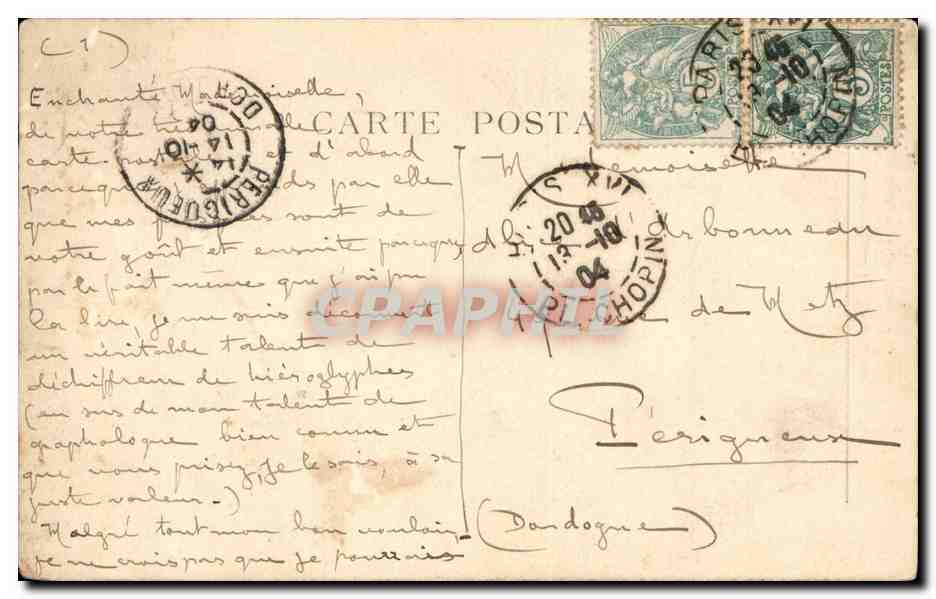 (1)
Enchanté Mademoiselle,
de votre très
carte d'abord
parceque par elle
que mes sont de
votre goût et ensuite parceque
par le fait même que j'ai pu
la lire, je me suis découvert
un véritable talent de
déchiffreur de hiéroglyphes
(en sus de mon talent de
graphologue bien connu et
que vous prisez, je le sais, à sa
juste valeur.)
Malgré tout mon bon vouloir,
je ne crois pas que je pourrais
CARTE POSTA
Mademoiselle
Arbonneau
de Metz
Périgueux
(Dordogne)
PERIGUEUX DOR
14-10
04
PARIS XVI
20 45
13-10
04
PL. CHOPIN
PARIS XVI
13-10
04
CHOPIN
POSTES
CPAPHIL